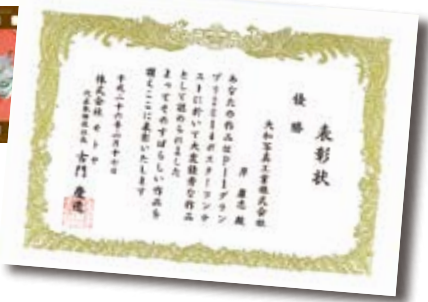 表彰状
優勝
大和写真工業株式会社
岸 殿
あなたの作品はpーーグラン
プリ2014ポスターコンテ
ストに於いて大変優秀な作品
として認められました
よってそのすばらしい作品を
讃えここに表彰いたします
平成二十六年六月十七日
株式会社 モトヤ
代表取締役社長 古門 慶造